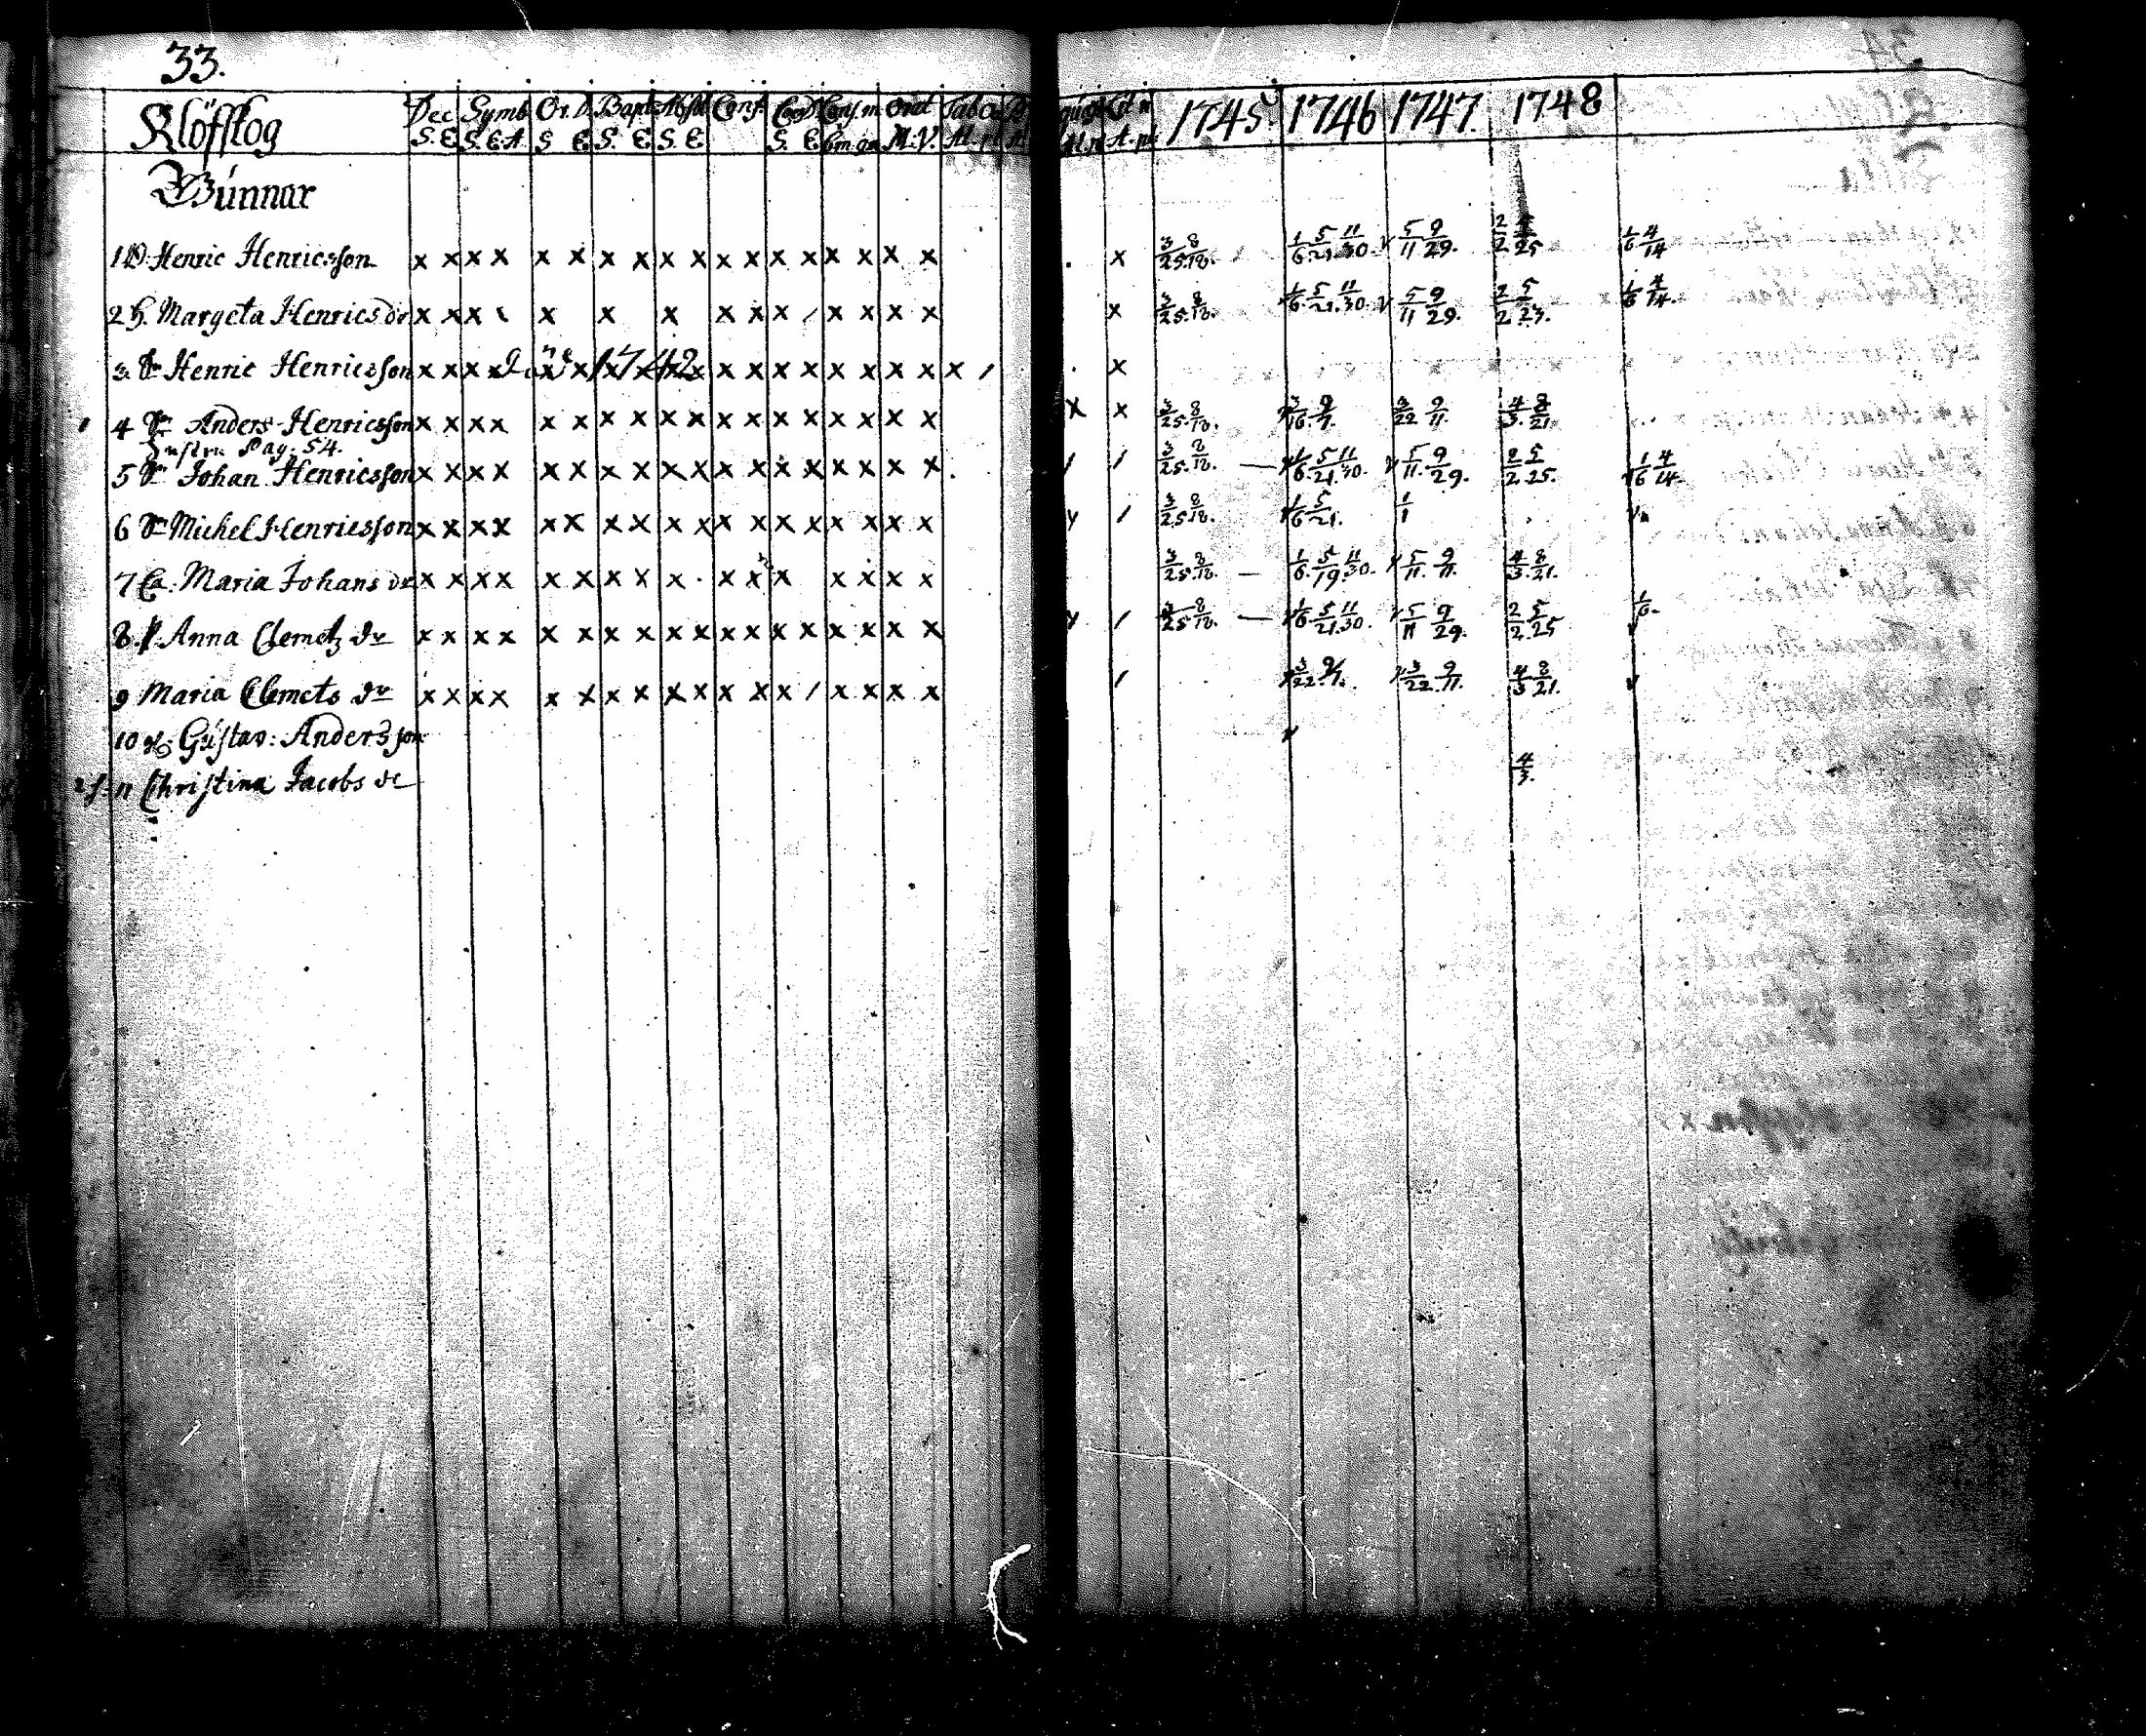 33.
Klöfskog Dec Symb Or. D. Bapt Absol Conf. Cœn D Conf. m. Orat Tab Oe 1745 1746 1747. 1748
S. E S. E. A S E S. E S. E S. E M. V. A. pl
Gunnar
1 Henric Henricsson x x x x x x x x x x x x x x x x x x . x 3/25. 8/18. 1/6. 5/21. 11/30. 5/11 9/29. 2/2 5/25 1/6 4/14
2 h. Margeta Henrics dr x x x x x x x x x x x x x x x 3/25. 8/18. 1/6. 5/21. 11/30 5/11 9/29. 2/2 5/23. 1/6 4/14.
3. Sn Henric Henricsson x x x x x x x x x x x x x x x x x 1742 x / . x
4 Sn Anders Henricsson x x x x x x x x x x x x x x x x x x x x 3/25. 8/18. 3/16. 9/7. 3/22 9/11. 4/3. 8/21.
Hustru Pag. 54.
5 Sn Johan Henricsson x x x x x x x x x x x x x x x x x x . / / 3/25. 8/18. — 1/6. 5/21. 11/30. 5/11. 9/29. 2/2 5/25. 1/6 4/14.
6 Sn Michel Henricsson x x x x x x x x x x x x x x x x x x / 3/25 8/18. 1/6. 5/21. 1/1
7 Maria Johans dr x x x x x x x x x . x x x x x x x 3/25. 8/18. — 1/6. 5/19. 11/30. 5/11. 9/11. 4/3. 8/21.
8. Anna Clemetz dr x x x x x x x x x x x x x x x x x x / 3/25 8/18. — 1/6. 5/21. 11/30. 5/11 9/29. 2/2. 5/25 1/6.
9 Maria Clemets dr x x x x x x x x x x x x x / x x x x / 3/22. 9/7. 3/22. 9/11. 4/3 8/21.
10 Gustav: Andersson
11 Christina Jacobs dr 4/3.